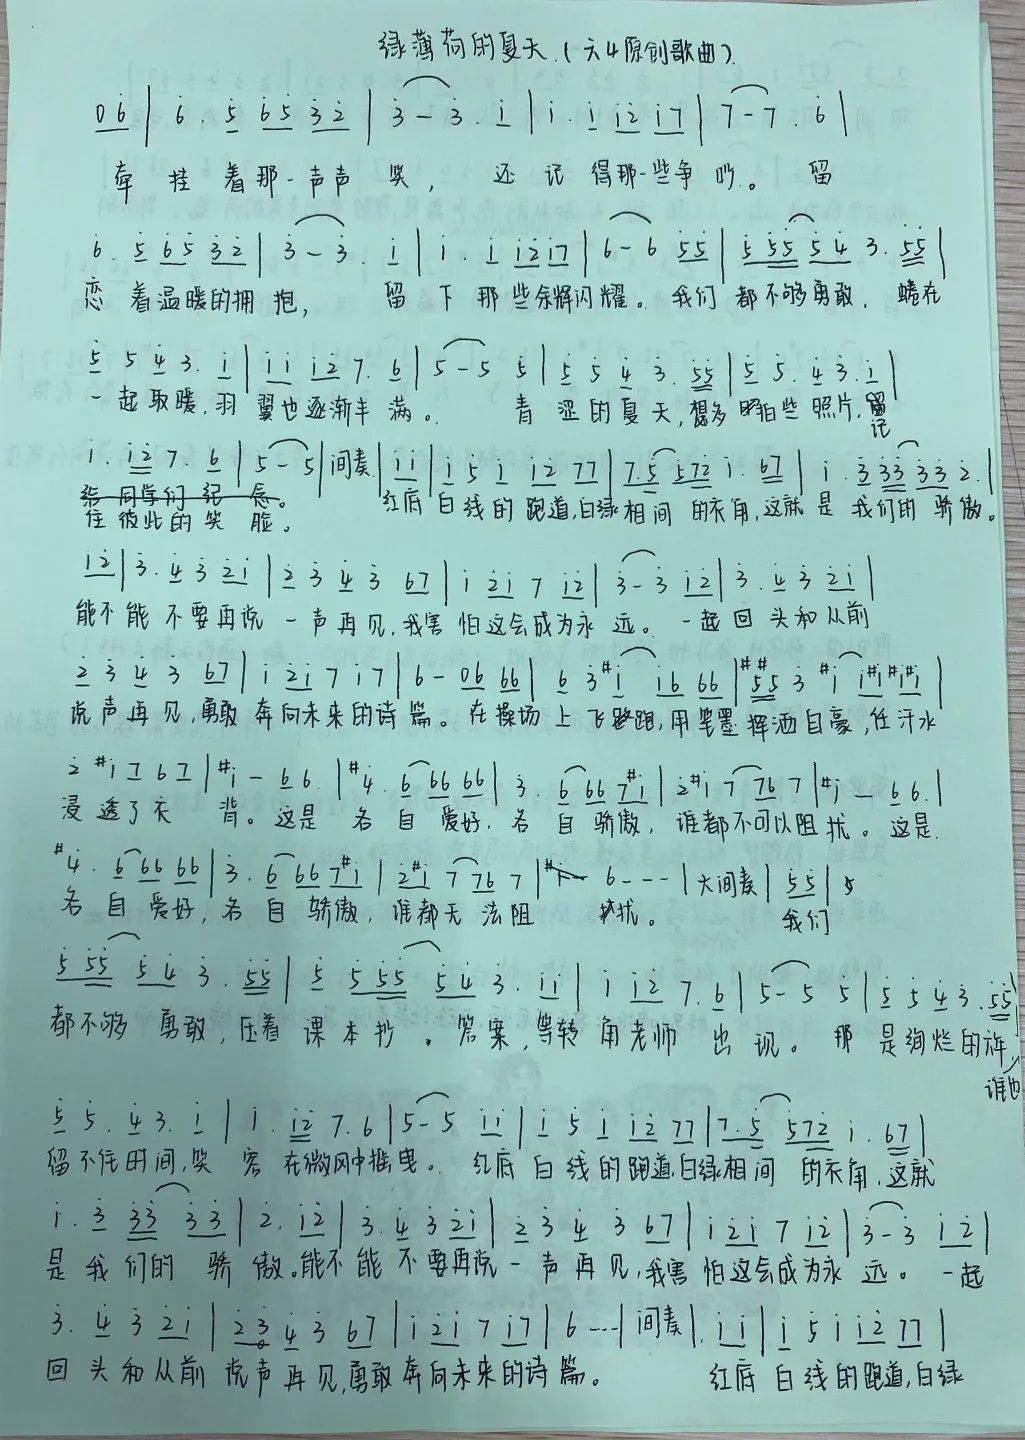 绿薄荷的夏天.(六4原创歌曲).
0 6̇ | 6̇ . 5̇ 6̇5̇ 3̇2̇ | 3̇ — 3̇ . i | i . i i2̇ i7 | 7 — 7 . 6̇ |
牵挂着那一声声笑, 还记得那一些争吵。留
6̇ . 5̇ 6̇5̇ 3̇2̇ | 3̇ — 3̇ . i | i . i i2̇i7 | 6 — 6 5̇5̇ | 5̇ 5̇5̇ 5̇ 4̇ 3. 5̇5̇ |
恋着温暖的拥抱, 留下那些余辉闪耀。我们都不够勇敢. 蜷在
5̇ 5 4̇ 3. i | i i i2̇ 7. 6 | 5 — 5 5̇ | 5̇ 5 4̇ 3. 5̇5̇ | 5̇ 5. 4̇ 3. i |
一起取暖,羽翼也逐渐丰满。 青涩的夏天,想多拍些照片,留记
i . i2̇ 7 6 | 5 — 5 | 间奏 | i i | i 5 i i2 77 | 7.5 572̇ i. 67 | i . 3̇ 3̇3̇ 3̇3̇ 2. |
同学们纪念。
住彼此的笑脸。 红底白线的跑道,白绿相间的衣角,这就是我们的骄傲。
i2̇ | 3̇. 4̇ 3̇ 2̇i | 2̇ 3̇ 4̇ 3̇ 67 | i 2̇i 7 i2̇ | 3̇ — 3̇ i2̇ | 3̇. 4̇ 3̇ 2̇i |
能不能不要再说一声再见,我害怕这会成为永远. 一起回头和从前
2̇ 3̇ 4̇ 3 67 | i 2̇i 7 i7 | 6 — 06 66 | 6 3 #i i6 66 | #5#5 3 #i i#i#i#i |
说声再见,勇敢奔向未来的诗篇。在操场上飞跑,用笔墨挥洒自豪,任汗水
2̇ #i 7 6 7 | #i — 6 6. | #4̇. 6 66 66 | 3̇. 6 66 7#i | 2̇#i 7 76 7 | #i — 6 6. |
浸透了衣背。这是各自爱好,各自骄傲,谁都不可以阻扰。这是.
#4̇. 6 66 66 | 3. 6 66 7#i | 2̇#i 7 76 7 | 6 - - - | 大间奏 | 5̇5̇ | 5
各自爱好,各自骄傲,谁都无法阻扰。 我们
5̇ 5̇5̇ 5̇ 4̇ 3̇. 5̇5̇ | 5̇ 5̇ 5̇5̇ 5̇4̇ 3̇. i i | i i2̇ 7. 6 | 5 — 5 5 | 5̇ 5 4̇ 3. 5̇5̇
都不够勇敢,任着课本抄。答案,等转角老师出现。那是绚烂的
谁也
5̇ 5. 4̇ 3. i | i. i2̇ 7. 6 | 5 — 5 i i | i 5 i i2̇ 77 | 7.5 572̇ i. 67 |
留不住时间,笑容在微风中摇曳。红底白线的跑道,白绿相间的衣角,这就
i. 3̇ 3̇3̇ 3̇3̇ | 2. i2̇ | 3̇. 4̇ 3̇ 2̇i | 2̇ 3̇ 4̇ 3 67 | i 2̇i 7 i2̇ | 3̇ — 3̇ i2̇ |
是我们的骄傲。能不能不要再说一声再见,我害怕这会成为永远。一起
3. 4̇ 3 2̇i | 2 3 4 3 67 | i 2̇i 7 i7 | 6 - - - | 间奏 | . i i | i 5 i i2̇ 77 |
回头和从前说声再见,勇敢奔向未来的诗篇。 红底白线的跑道,白绿